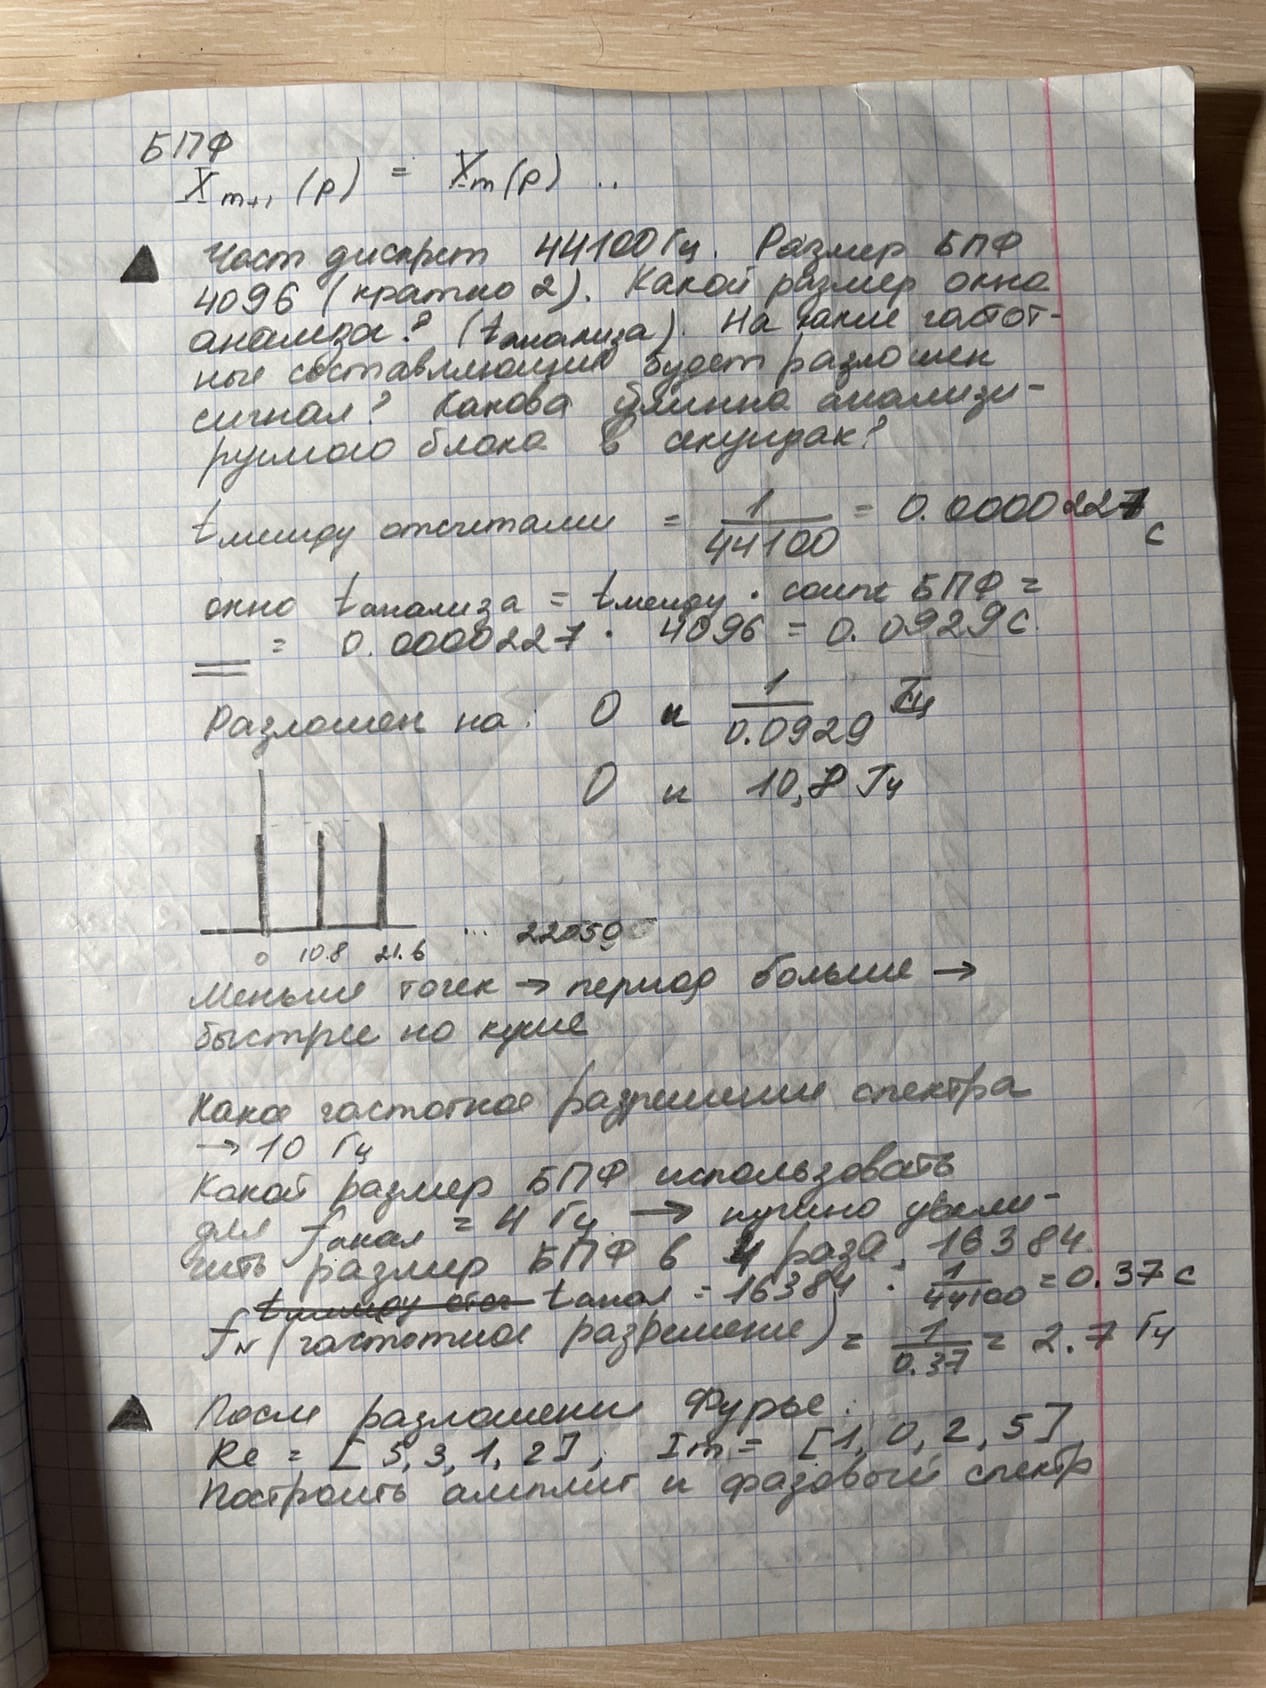 БПФ
X m+1 (p) = X m (p) ..
Част дискрет 44100 Гц. Размер БПФ
4096 (кратно 2). Какой размер окна
анализа? (t анализа). На какие частот-
ные составляющие будет разложен
сигнал? Какова длинна анализи-
руемого блока в секундах?
t между отсчетами = 1/44100 = 0.0000227 с
окно t анализа = t между · БПФ =
= 0.0000227 · 4096 = 0.0929 с.
Разложен на: 0 и 1/0.0929 Гц
0 и 10,8 Гц
0 10.8 21.6 ... 22050
Меньше точек → период больше →
быстрее но хуже
Какое частотное разрешение спектра
→ 10 Гц
Какой размер БПФ использовать
для f анал = 4 Гц → нужно увели-
чить размер БПФ в 4 раза, 16384
t анал = 16384 · 1/44100 = 0.37 с
f N (частотное разрешение) = 1/0.37 = 2.7 Гц
После разложения Фурье:
Re = [5, 3, 1, 2], Im = [1, 0, 2, 5]
Построить амплит и фазовый спектр